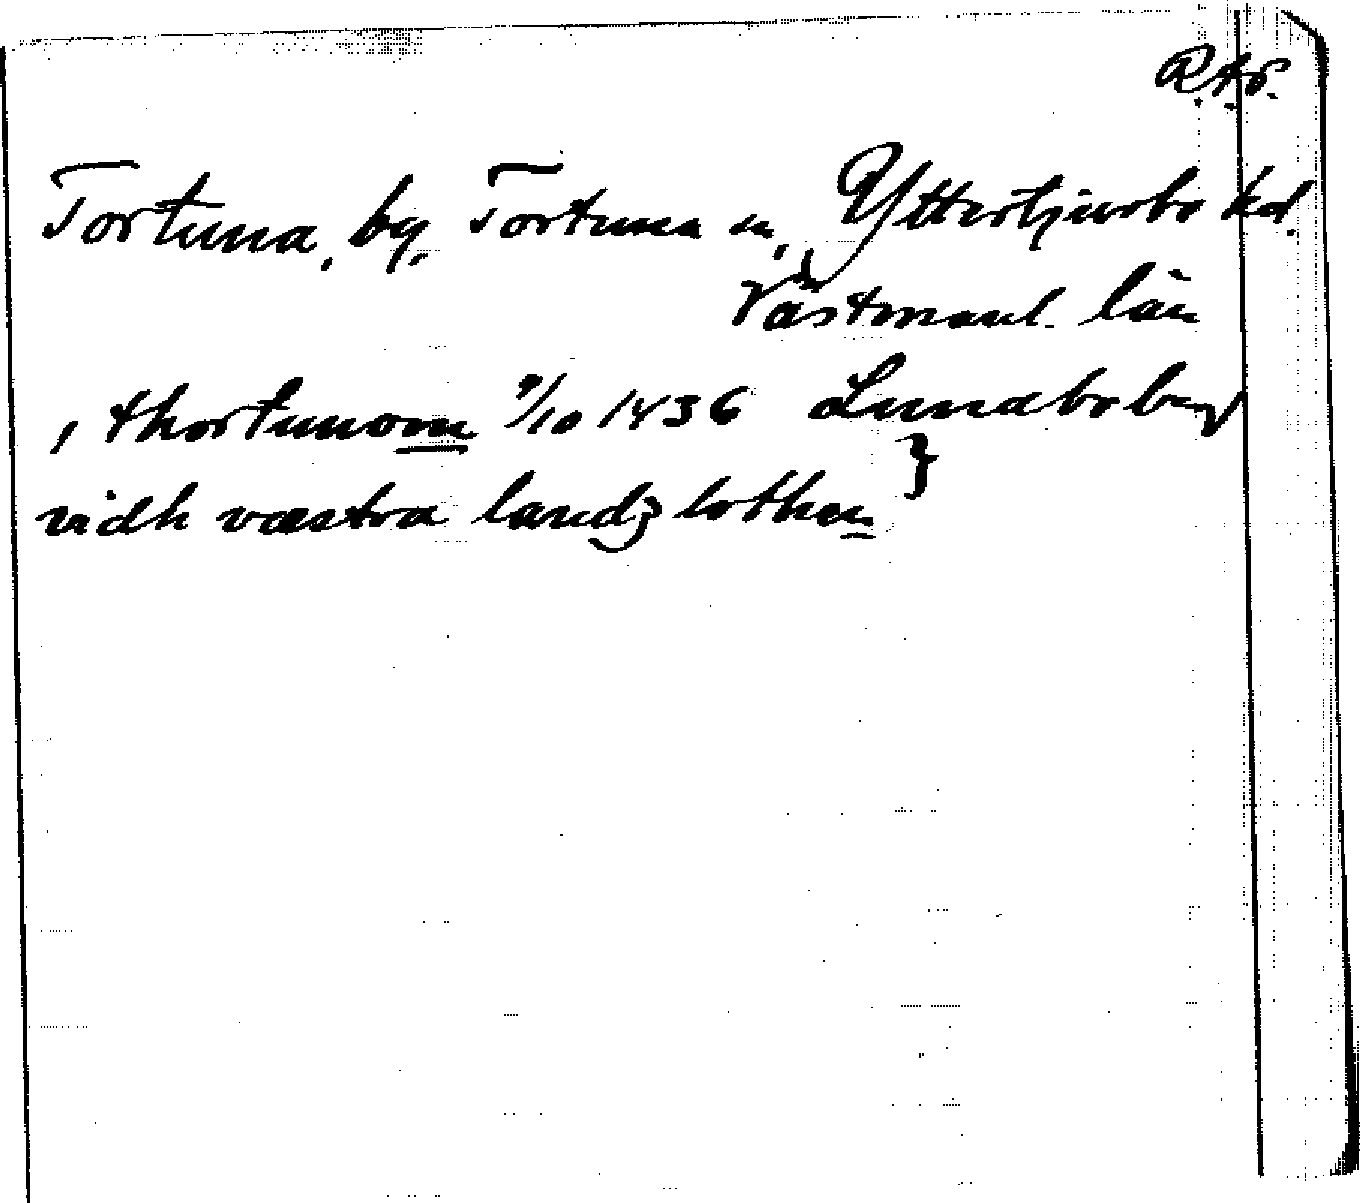 R.A.P.
Tortuna, by, Tortuna sn, Ytterstjurbo hd.
Västmanl. län
, thortunom 9/10 1436 Lundboberg
vidh væstra landz lothen }